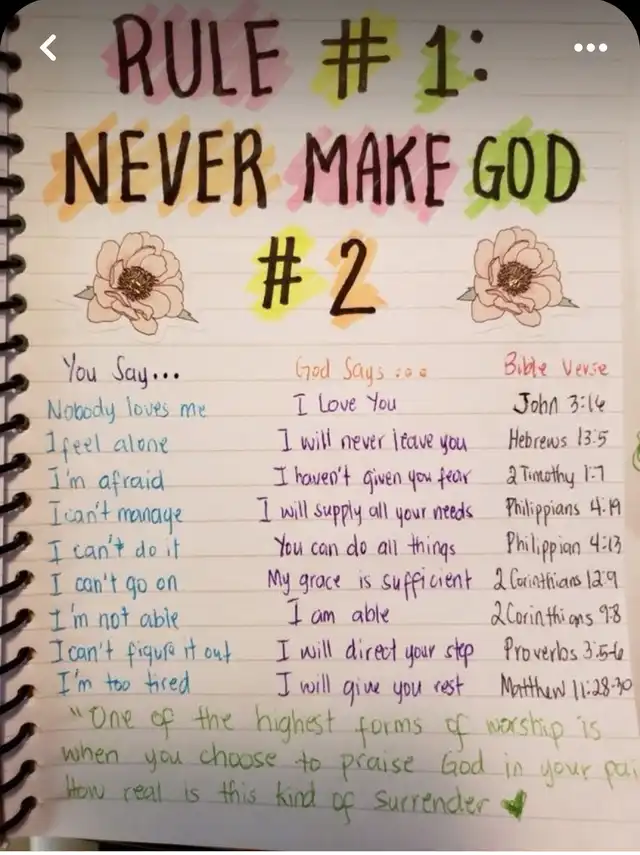 RULE # 1:
NEVER MAKE GOD
# 2
You Say... God Says ... Bible Verse
Nobody loves me I Love You John 3:16
I feel alone I will never leave you Hebrews 13:5
I'm afraid I haven't given you fear 2 Timothy 1:7
I can't manage I will supply all your needs Philippians 4:19
I can't do it You can do all things Philippian 4:13
I can't go on My grace is sufficient 2 Corinthians 12:9
I'm not able I am able 2 Corinthians 9:8
I can't figure it out I will direct your step Proverbs 3:5-6
I'm too tired I will give you rest Matthew 11:28-30
"One of the highest forms of worship is
when you choose to praise God in your pai
How real is this kind of surrender